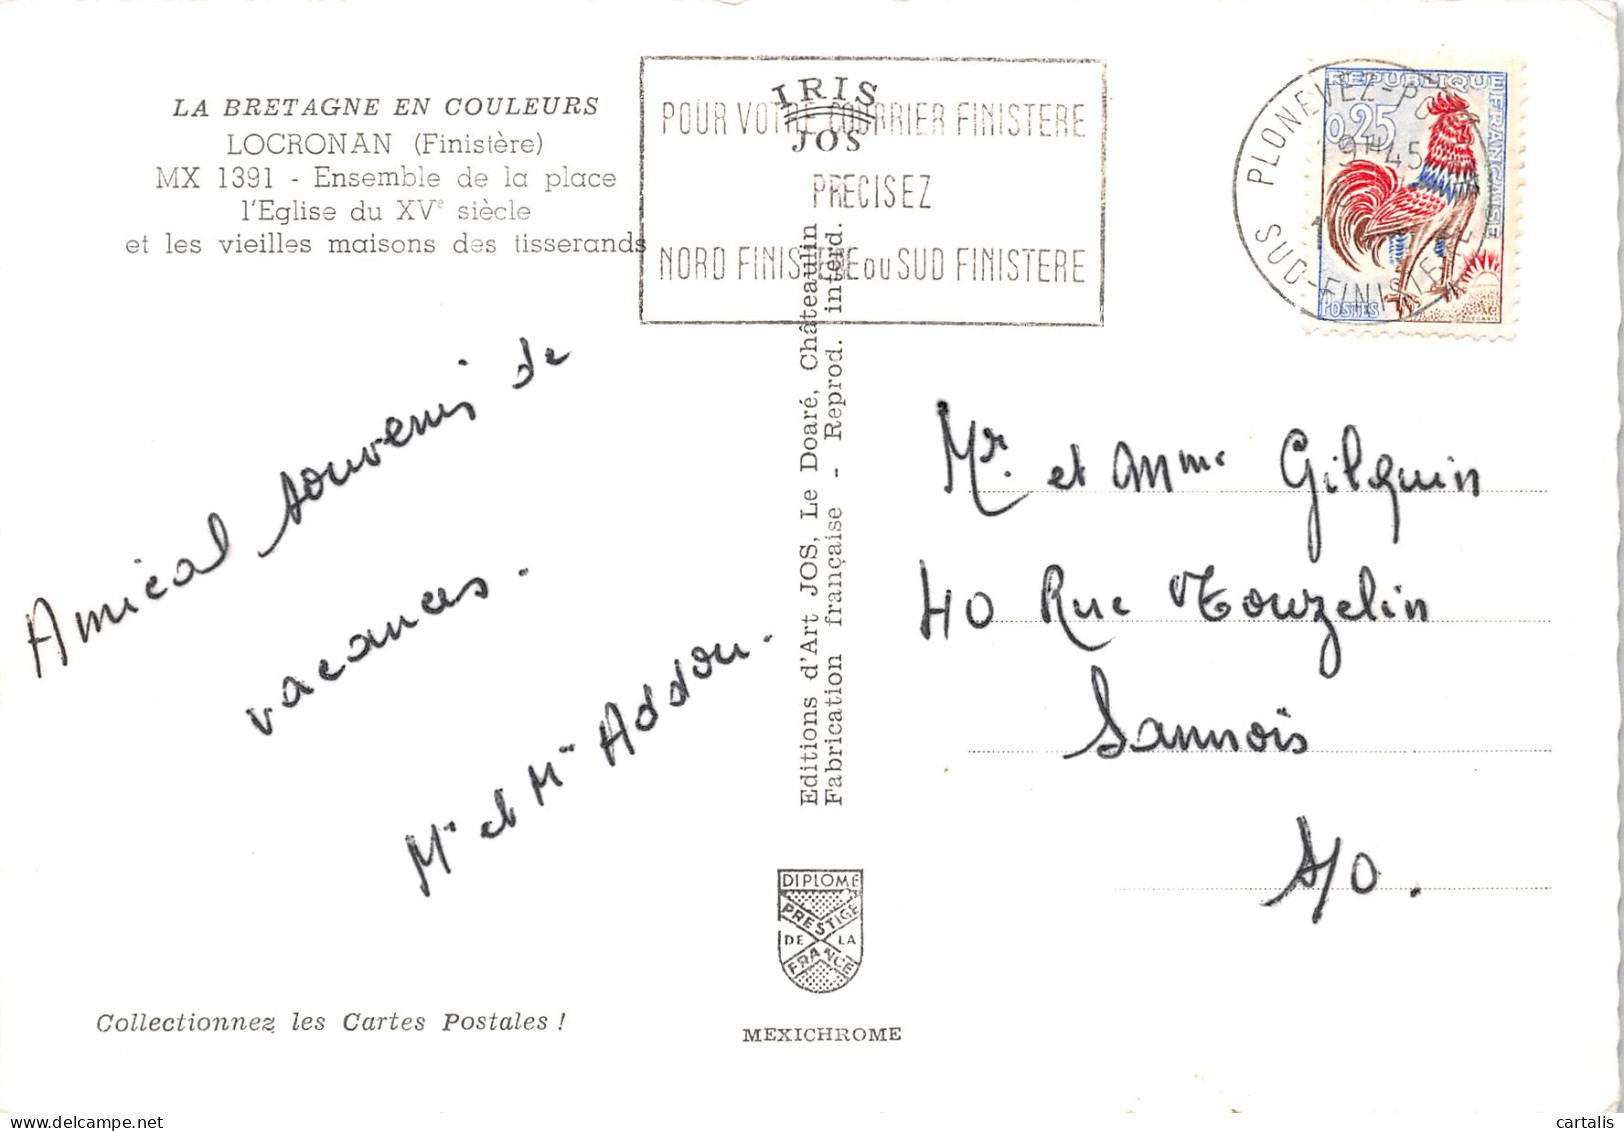 LA BRETAGNE EN COULEURS
LOCRONAN (Finistère)
MX 1391 - Ensemble de la place
l'Eglise du XVe siècle
et les vieilles maisons des tisserands
IRIS
JOS
POUR VOTRE COURRIER FINISTERE
PRECISEZ
NORD FINISTERE ou SUD FINISTERE
PLONEVEZ-PO
9H45
SUD-FINISTERE
REPUBLIQUE FRANÇAISE
0,25
POSTES
Amical souvenir de
vacances.
Mr et Mme Addou.
Editions d'Art JOS, Le Doaré, Châteaulin
Fabrication française - Reprod. interd.
Mr. et Mme Gilquin
40 Rue Touzelin
Sannois
S/O.
DIPLOME
PRESTIGE
DE LA
FRANCE
Collectionnez les Cartes Postales !
MEXICHROME
cartalis
delcampe.net